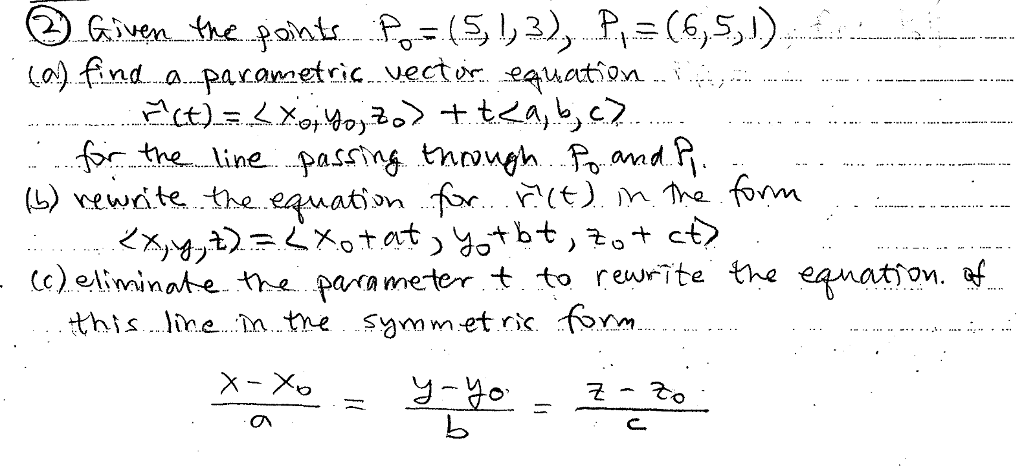 ② Given the points P₀ = (5, 1, 3), P₁ = (6, 5, 1)
(a) find a parametric vector equation
r⃗(t) = <x₀, y₀, z₀> + t<a, b, c>
for the line passing through P₀ and P₁.
(b) rewrite the equation for r⃗(t) in the form
<x, y, z> = <x₀ + at, y₀ + bt, z₀ + ct>
(c) eliminate the parameter t to rewrite the equation of
this line in the symmetric form
x - x₀ / a = y - y₀ / b = z - z₀ / c